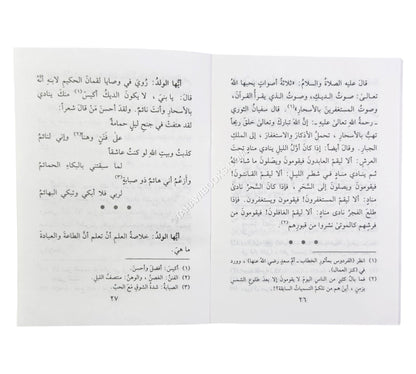 قال عليه الصلاةُ والسلامُ: «ثلاثةُ أصواتٍ يحبها اللهُ
تعالىٰ: صوتُ الديكِ، وصوتُ الذي يقرأُ القرآنَ،
وصوتُ المستغفرينَ بالأسحارِ»(١). قال سفيانُ الثوري
ـ رحمةُ اللهِ تعالىٰ عليهِ ـ: إنَّ اللهَ تباركَ وتعالىٰ خلقَ ريحاً
تهبُّ بالأسحارِ، تحملُ الأذكارَ والاستغفارَ، إلى الملكِ
الجبارِ. وقال أيضاً: إذا كانَ أولُ الليلِ نادىٰ منادٍ تحتَ
العرشِ: ألا ليقُمِ العابدونَ فيقومونَ ويصلونَ ما شاءَ اللهُ
ثم ينادي منادٍ في شطرِ الليلِ: ألا ليقمِ القانتونَ!
فيقومونَ ويصلونَ إلى السَّحَرِ، فإذا كانَ السَّحَرُ نادىٰ
منادٍ: ألا ليقمِ المستغفرونَ! فيقومونَ ويستغفرونَ. فإذا
طلعَ الفجرُ نادىٰ منادٍ: ألا ليقمِ الغافلونَ! فيقومونَ مِنْ
فرشِهم كالموتىٰ نشروا من قبورِهم(٢).
(١) انظر (الفردوس بمأثور الخطاب ـ أم سعد رضي الله عنها)، وورد
في (كنز العمال).
(٢) فما بالُ كثيرٍ من الناس اليومَ لا يقومونَ إلا بعدَ طلوعِ الشمسِ
بزمنٍ، أين هم من تلكمُ التسميات السابقة؟!.
٢٦
أيُّها الولدُ: رُوِيَ في وصايا لقمانَ الحكيمِ لابنِهِ أنَّهُ
قالَ: يا بنيَّ، لا يكونَنَّ الديكُ أكيَسَ(١) منكَ ينادي
بالأسحارِ وأنتَ نائمٌ. ولقد أحسنَ مَنْ قالَ شعراً:
لقد هتفتْ في جنحِ ليلٍ حمامةٌ
علىٰ فَنَنٍ وهناً(٢) وإني لنائمُ
كذبتُ وبيتِ اللهِ لو كنتُ عاشقاً
لما سبقتني بالبكاءِ الحمائمُ
وأزعُمُ أني هائمٌ ذو صبابةٍ(٣)
لربي فلا أبكي وتبكي البهائمُ
أيُّها الولدُ: خلاصةُ العلمِ أنْ تعلمَ أنَّ الطاعةَ والعبادةَ
ما هيَ.
(١) أكيس: أفضل وأحسن.
(٢) الفنن: الغصن، والوهن: منتصف الليل.
(٣) الصبابة: شدة الشوق مع الحب.
٢٧